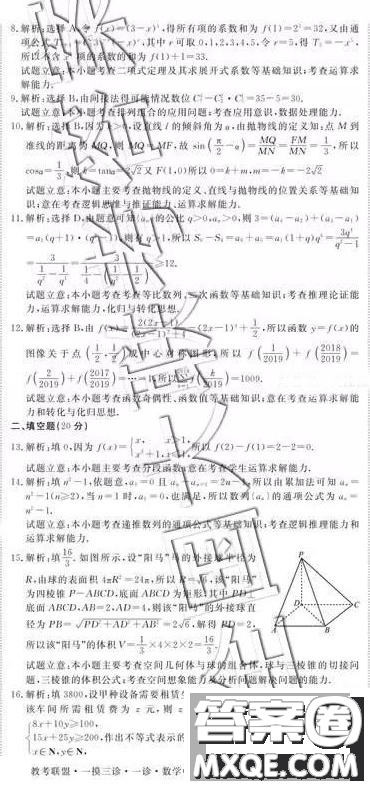 8.解析:选择 A,令 f(x)=(3-x)⁵,得所有项的系数和为 f(1)=2⁵=32,又由通
项公式 其中 r 可取 0,1,2,3,4,5,令 r=5,得 T₆=-x⁵,
所以不含 x⁵ 项的系数的和为 f(1)+1=33.
试题立意:本小题考查二项式定理及其求展开式系数等基础知识;考查运算求
解能力.
9.解析:选择 B,由间接法得可能情况数位 =35-5=30.
试题立意:本小题考查排列组合的应用问题;考查应用意识,数据处理能力.
10.解析:选择 B,因为 k>0,设直线 l 的倾斜角为 α,由抛物线的定义知:点 M 到
准线的距离为 MQ,则 MQ=MF,故 sin(π/2-α)=MQ/MN=FM/MN=1/3,所以
cosα=1/3,则 k=tanα=2√2 又 F(1,0)所以 0=k+m,m=-k=-2√2
试题立意:本小题主要考查抛物线的定义、直线与抛物线的位置关系等基础知
识;意在考查逻辑思维与推证能力、运算求解能力.
11.解析:选择 D,由题意可知{aₙ}的公比 q>0,aₙ>0,则 3=(a₄-a₂)+(a₃-a₁)
=a₁(q+1)·(q²-1),则有 q>1,所以 S₆-S₄=a₅+a₆=a₁(1+q)q⁴=3q⁴/(q²-1)
≥12.
试题立意:本小题考查考查等比数列、二次函数等基础知识;考查推理论证能
力,运算求解能力,化归与转化思想.
12.解析:选择 B,由 (2x-1)³+1/2,所以函数 y=f(x)的
图像关于点(1/2,1/2)成中心对称图形,所以 f(1/2019)+f(2018/2019)=
f(2/2019)+f(2017/2019)=…=1,所以 =1009.
试题立意:本小题考查函数奇偶性、函数值等基础知识;意在考查运算求解能
力和转化与化归思想.
二、填空题(20 分)
13.解析:填 0,因为 f(x)= 所以 f(2)-f(1)=2-2=0.
试题立意:本小题主要考查分段函数;意在考查学生运算求解能力.
14.解析:填 n²-1,依题意,a₁=0 且 aₙ-aₙ₋₁=2n-1,所以由累加法可知 aₙ=
n²-1(n≥2),当 n=1 时,a₁=0,也满足,所以数列{aₙ}的通项公式为 aₙ=
n²-1.
试题立意:本小题考查递推数列的通项公式等基础知识;考查逻辑推理能力和
运算求解能力.
15.解析:填 16/3.如图所示,设“阳马”的外接球半径为
R,由球的表面积 4πR²=24π,所以 R=√6,该“阳马”
为四棱锥 P-ABCD,底面 ABCD 为矩形,其中 PD⊥
底面 ABCD,AB=2,AD=4,则该“阳马”的外接球直
径为 PB=√(PD²+AD²+AB²)=2√6,解得 PD=2,
所以该“阳马”的体积 V=1/3×4×2×2=16/3.
P
D
C
A
B
试题立意:本小题主要考查空间几何体与球的组合体,球与三棱锥的切接问
题,三棱锥的体积公式;考查空间想象能力及分析问题解决问题的能力.
16.解析:填 3800,设甲种设备需要租赁
该车间所需租赁费为 z 元,则 z
8x+10y≥100,
15x+25y≥200,作出不等式表示的
x∈N,y∈N,
教考联盟·一摸三诊·一诊·数学
答案圈
MXQE.COM